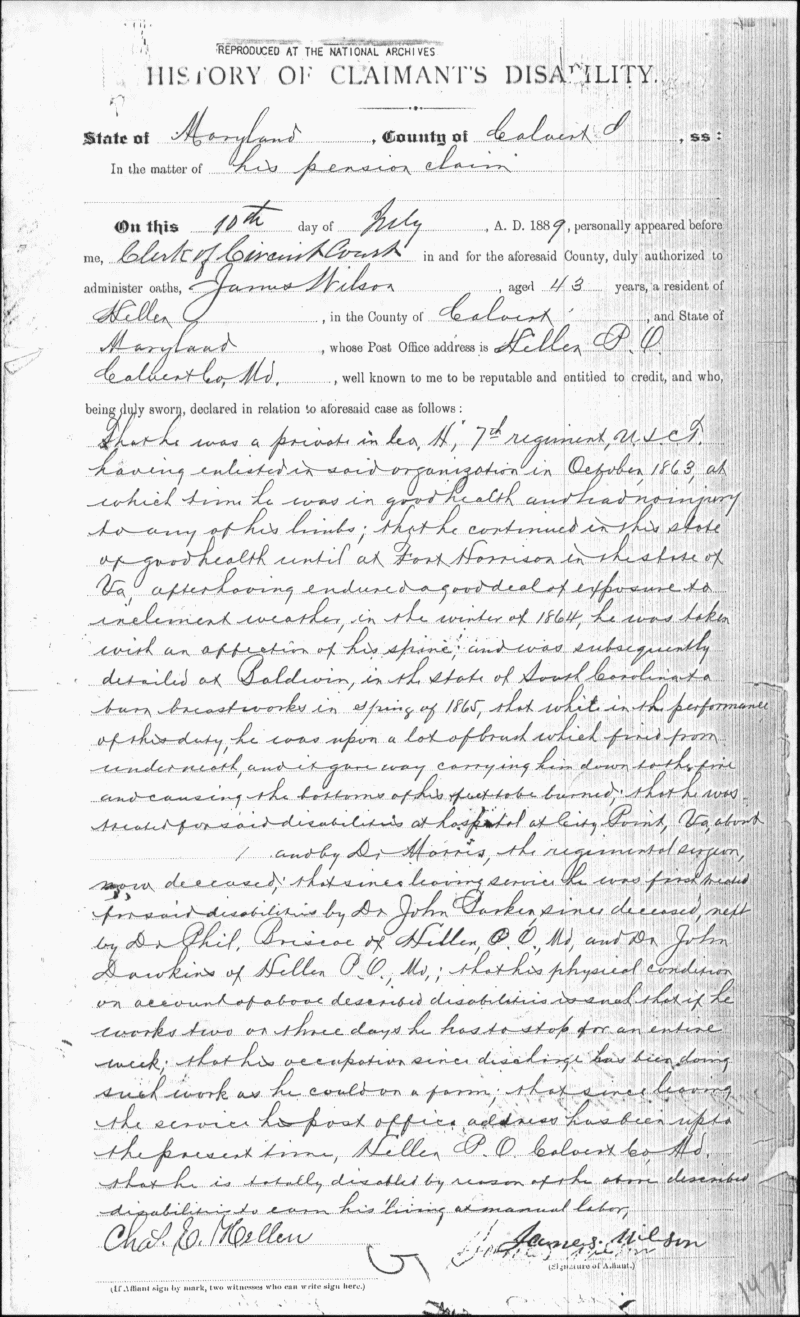 REPRODUCED AT THE NATIONAL ARCHIVES
HISTORY OF CLAIMANT'S DISABILITY.
State of Maryland, County of Calvert, ss:
In the matter of his pension claim
On this 10th day of July, A. D. 1889, personally appeared before
me, Clerk of Circuit Court in and for the aforesaid County, duly authorized to
administer oaths, James Wilson, aged 43 years, a resident of
Hellen, in the County of Calvert, and State of
Maryland, whose Post Office address is Hellen P. O.
Calvert Co, Md., well known to me to be reputable and entitled to credit, and who,
being duly sworn, declared in relation to aforesaid case as follows:
That he was a private in Co, H, 7th regiment, U S C T.
having enlisted in said organization in October, 1863, at
which time he was in good health and had no injury
to any of his limbs; that he continued in this state
of good health until at Fort Harrison in the state of
Va, after having endured a good deal of exposure to
inclement weather, in the winter of 1864, he was taken
with an affection of his spine; and was subsequently
detailed at Baldwin, in the state of South Carolina to
burn breastworks in spring of 1865, that while in the performance
of this duty, he was upon a lot of brush which fired from
underneath, and it gave way carrying him down to the fire
and causing the bottoms of his feet to be burned; that he was
treated for said disabilities at hospital at City Point, Va, about
and by Dr Morris, the regimental surgeon,
now deceased; that since leaving service he was first treated
for said disabilities by Dr John Parker, since deceased, next
by Dr Phil. Briscoe of Hellen, P. O., Md, and Dr John
Dawkins of Hellen P. O., Md,; that his physical condition
on account of above described disabilities is such that if he
works two or three days he has to stop for an entire
week; that his occupation since discharge has been doing
such work as he could on a farm; that since leaving
the service his post office address has been up to
the present time, Hellen P. O Calvert Co, Md.
that he is totally disabled by reason of the above described
disabilities to earn his living at manual labor,
Chas. E. Hellen James. Wilson
(Signature of Affiant.)
(If Affiant sign by mark, two witnesses who can write sign here.)
147